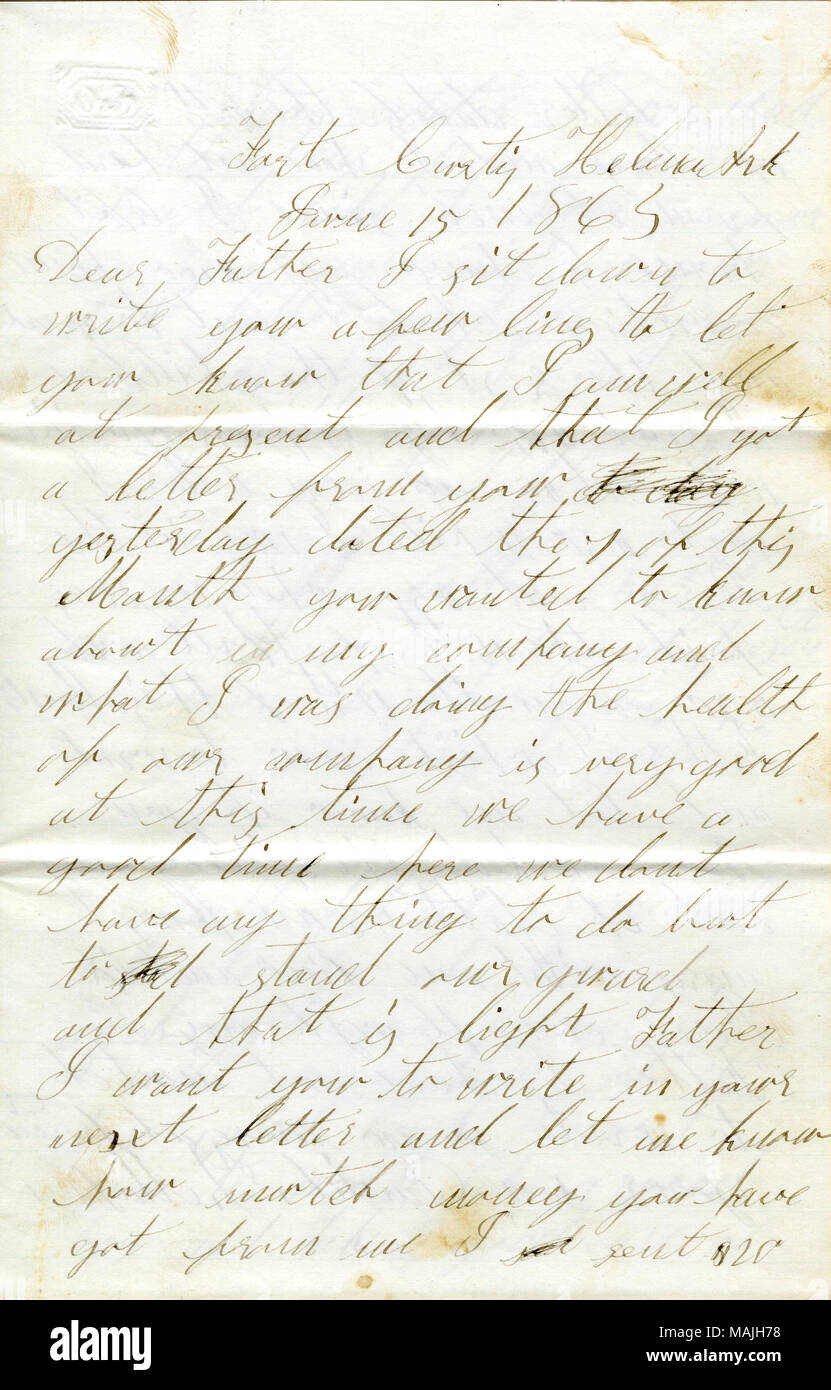 Fort Curtis Helena Ark
June 15 1863
Dear Father I sit down to
write your a few lines to let
your know that I am well
at present and that I got
a letter from your
yesterday dated the 7 of this
Month your wanted to know
about in my company and
what I was doing the health
of our company is very good
at this time we have a
good time here we dont
have any thing to do but
to stand our guard
and that is light Father
I want your to write in yours
next letter and let me know
how mutch money your have
got from me I sent $20
alamy
Image ID: MAJH78
www.alamy.com